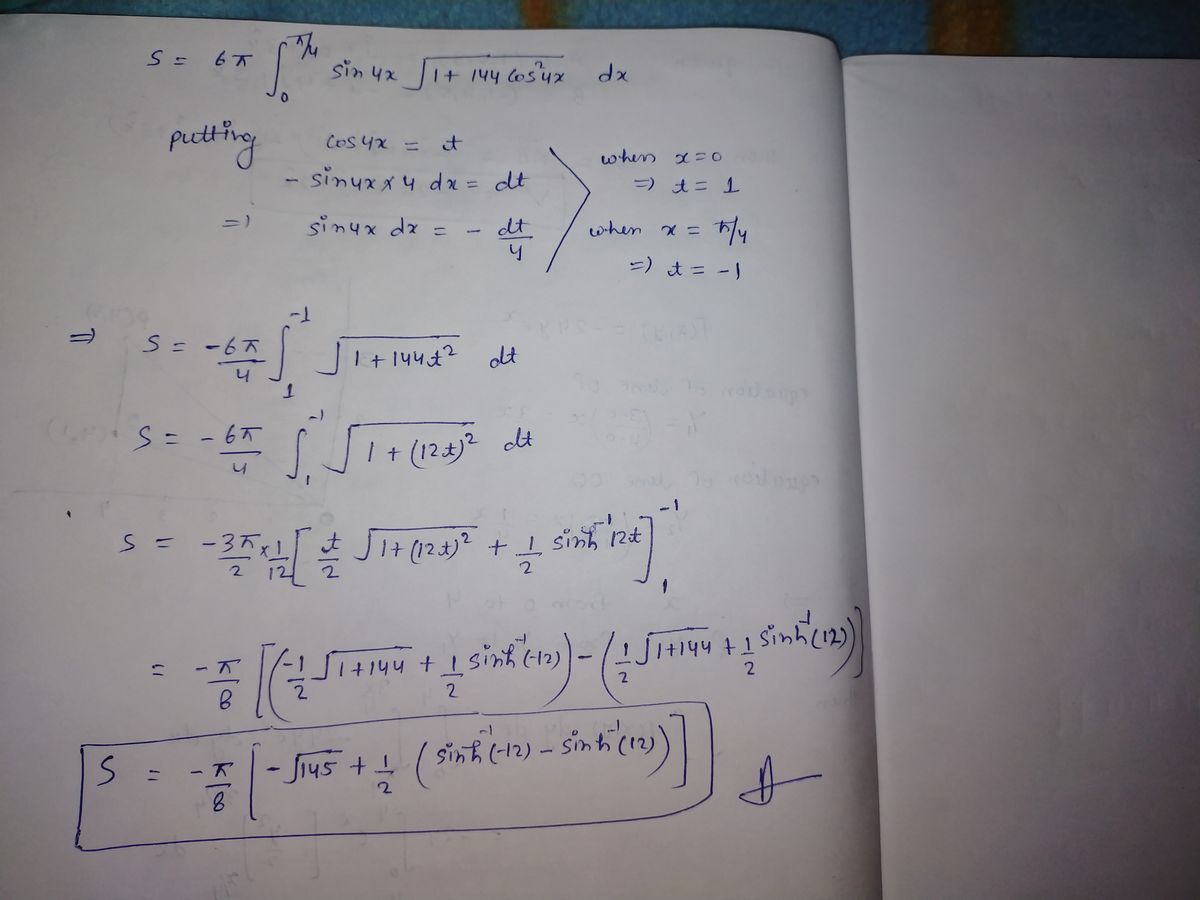 S = 6π ∫₀^π/4 sin 4x √(1 + 144 cos²4x) dx
putting cos 4x = t
- sin4x × 4 dx = dt
=) sin4x dx = - dt/4
when x = 0
=) t = 1
when x = π/4
=) t = -1
=) S = -6π/4 ∫₁^-1 √(1 + 144t²) dt
S = - 6π/4 ∫₁^-1 √(1 + (12t)²) dt
S = -3π/2 × 1/12 [ t/2 √(1 + (12t)²) + 1/2 sinh⁻¹ 12t ]₁^-1
= -π/8 [ (-1/2 √(1+144) + 1/2 sinh⁻¹(-12)) - (1/2 √(1+144) + 1/2 sinh⁻¹(12)) ]
S = -π/8 [ -√145 + 1/2 ( sinh⁻¹(-12) - sinh⁻¹(12) ) ]